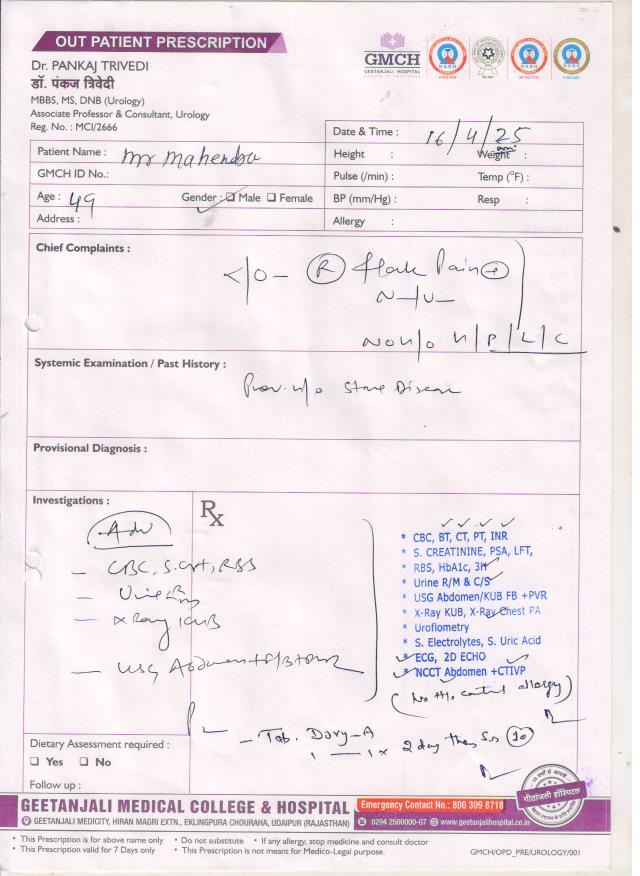 OUT PATIENT PRESCRIPTION
Dr. PANKAJ TRIVEDI
डॉ. पंकज त्रिवेदी
MBBS, MS, DNB (Urology)
Associate Professor & Consultant, Urology
Reg. No. : MCI/2666
GMCH
GEETANJALI HOSPITAL
Date & Time : 16/4/25
Patient Name : Mr Mahendra
Height : Weight :
GMCH ID No.:
Pulse (/min) : Temp (°F) :
Age : 49 Gender : Male Female
BP (mm/Hg) : Resp :
Address :
Allergy :
Chief Complaints :
C/O - (R) Flank Pain +
N-/V-
No H/O H/P/L/C
Systemic Examination / Past History :
Prev. H/o Stone Disease
Provisional Diagnosis :
Investigations :
Rx
Adv
- CBC, S.Crt, RBS
- Urine R/m
- X Ray KUB
- USG Abdomen
* CBC, BT, CT, PT, INR
* S. CREATININE, PSA, LFT,
* RBS, HbA1c, 3H
* Urine R/M & C/S
* USG Abdomen/KUB FB +PVR
* X-Ray KUB, X-Ray Chest PA
* Uroflometry
* S. Electrolytes, S. Uric Acid
* ECG, 2D ECHO
* NCCT Abdomen +CTIVP
(No H/o contrast allergy)
- Tab. 
1 - 1 x 2 day then Sos (10)
Dietary Assessment required :
Yes No
Follow up :
गीतांजली हॉस्पिटल
GEETANJALI MEDICAL COLLEGE & HOSPITAL
Emergency Contact No.: 800 309 8718
GEETANJALI MEDICITY, HIRAN MAGRI EXTN., EKLINGPURA CHOURAHA, UDAIPUR (RAJASTHAN)
0294 2500000-07 www.geetanjalihospital.co.in
• This Prescription is for above name only • Do not substitute • If any allergy, stop medicine and consult doctor
• This Prescription valid for 7 Days only • This Prescription is not meant for Medico-Legal purpose.
GMCH/OPD_PRE/UROLOGY/001